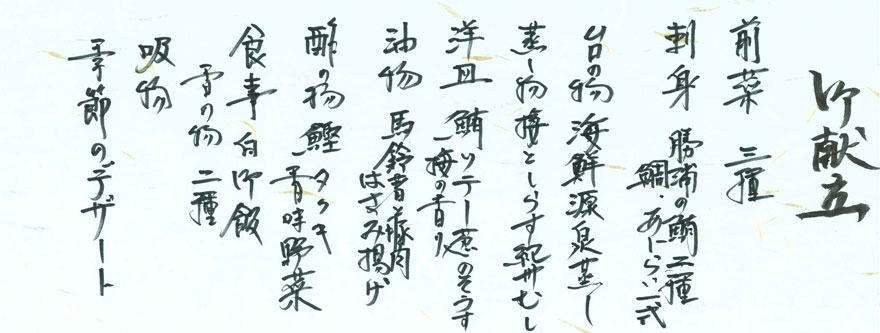 御献立
前菜 三種
刺身 勝浦の鮪二種
鯛・あしらい一式
台の物 海鮮源泉蒸し
蒸し物 梅としらす紀州むし
洋皿 鮪ソテー葱のそうす
梅の香り
油物 馬鈴書豚肉
はさみ揚げ
酢の物 鰹タタキ
香味野菜
食事 白御飯
香の物 二種
吸物
季節のデザート